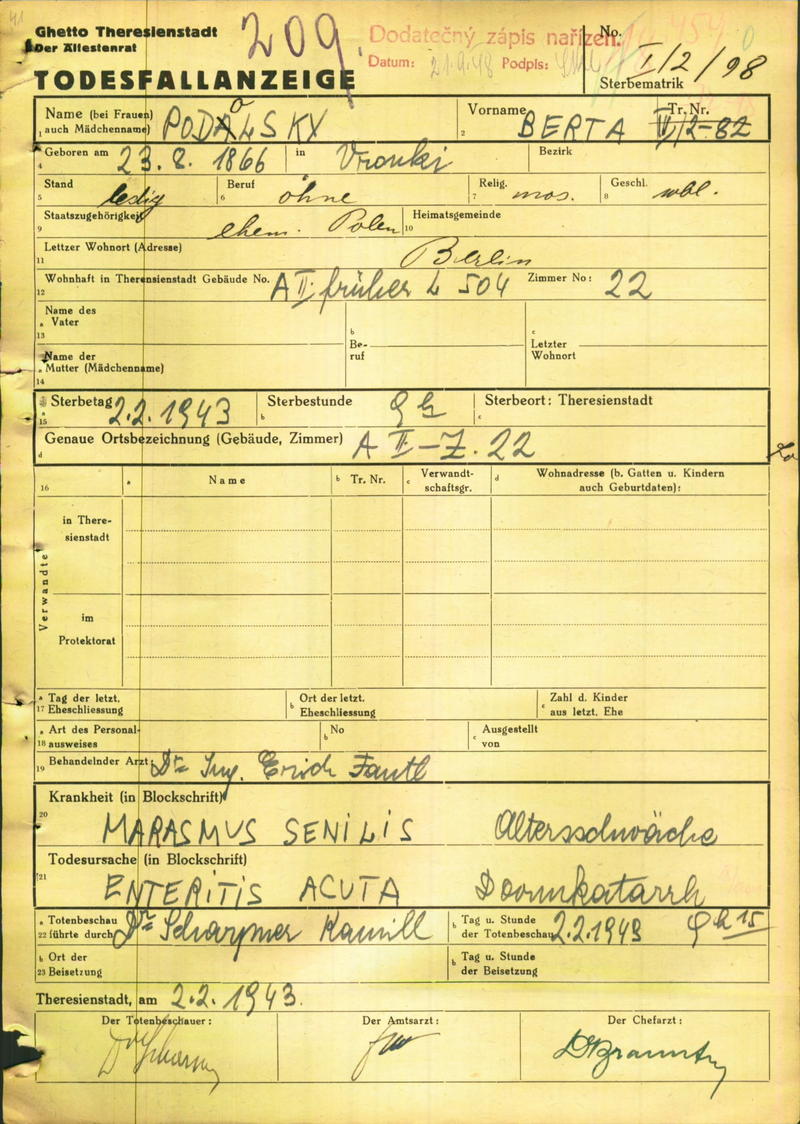 41
Ghetto Theresienstadt
Der Ältestenrat
209.
Dodatečný zápis nařízen.
Datum: 21.9.48 Podpis:
No.
I/2/98
Sterbematrik
TODESFALLANZEIGE
Name (bei Frauen)
1 auch Mädchenname) PODALSKY
o
Vorname BERTA
2
Tr. Nr.
4 Geboren am 23. 8. 1866 in Vronki Bezirk
Stand ledig Beruf ohne Relig. mos. Geschl. wbl.
5 6 7 8
Staatszugehörigkeit ehem. Polen Heimatsgemeinde
9 10
Lettzer Wohnort (Adresse) Berlin
11
Wohnhaft in Theresienstadt Gebäude No. A II. früher L 504 Zimmer No: 22
12
Name des
a Vater
13
b
Be-
ruf
c
Letzter
Wohnort
Name der
a Mutter (Mädchenname)
14
Sterbetag 2.2.1943 Sterbestunde 9 h Sterbeort: Theresienstadt
a 15 b c
Genaue Ortsbezeichnung (Gebäude, Zimmer) A II-Z. 22
d
16 a Name b Tr. Nr. c Verwandt-
schaftsgr. d Wohnadresse (b. Gatten u. Kindern
auch Geburtdaten):
Verwandte
in There-
sienstadt
im
Protektorat
a Tag der letzt.
17 Eheschliessung
b Ort der letzt.
Eheschliessung
c Zahl d. Kinder
aus letzt. Ehe
a Art des Personal-
18 ausweises
b No
c Ausgestellt
von
Behandelnder Arzt: Dr Ing. Erich Fantl
19
Krankheit (in Blockschrift)
20
MARASMUS SENILIS Altersschwäche
Todesursache (in Blockschrift)
21
ENTERITIS ACUTA Darmkatarrh
a Totenbeschau
22 führte durch Dr Kamill
b Tag u. Stunde
der Totenbeschau 2.2.1943 9 h 15
b Ort der
23 Beisetzung
b Tag u. Stunde
der Beisetzung
Theresienstadt, am 2.2.1943.
Der Totenbeschauer: Der Amtsarzt: Der Chefarzt: